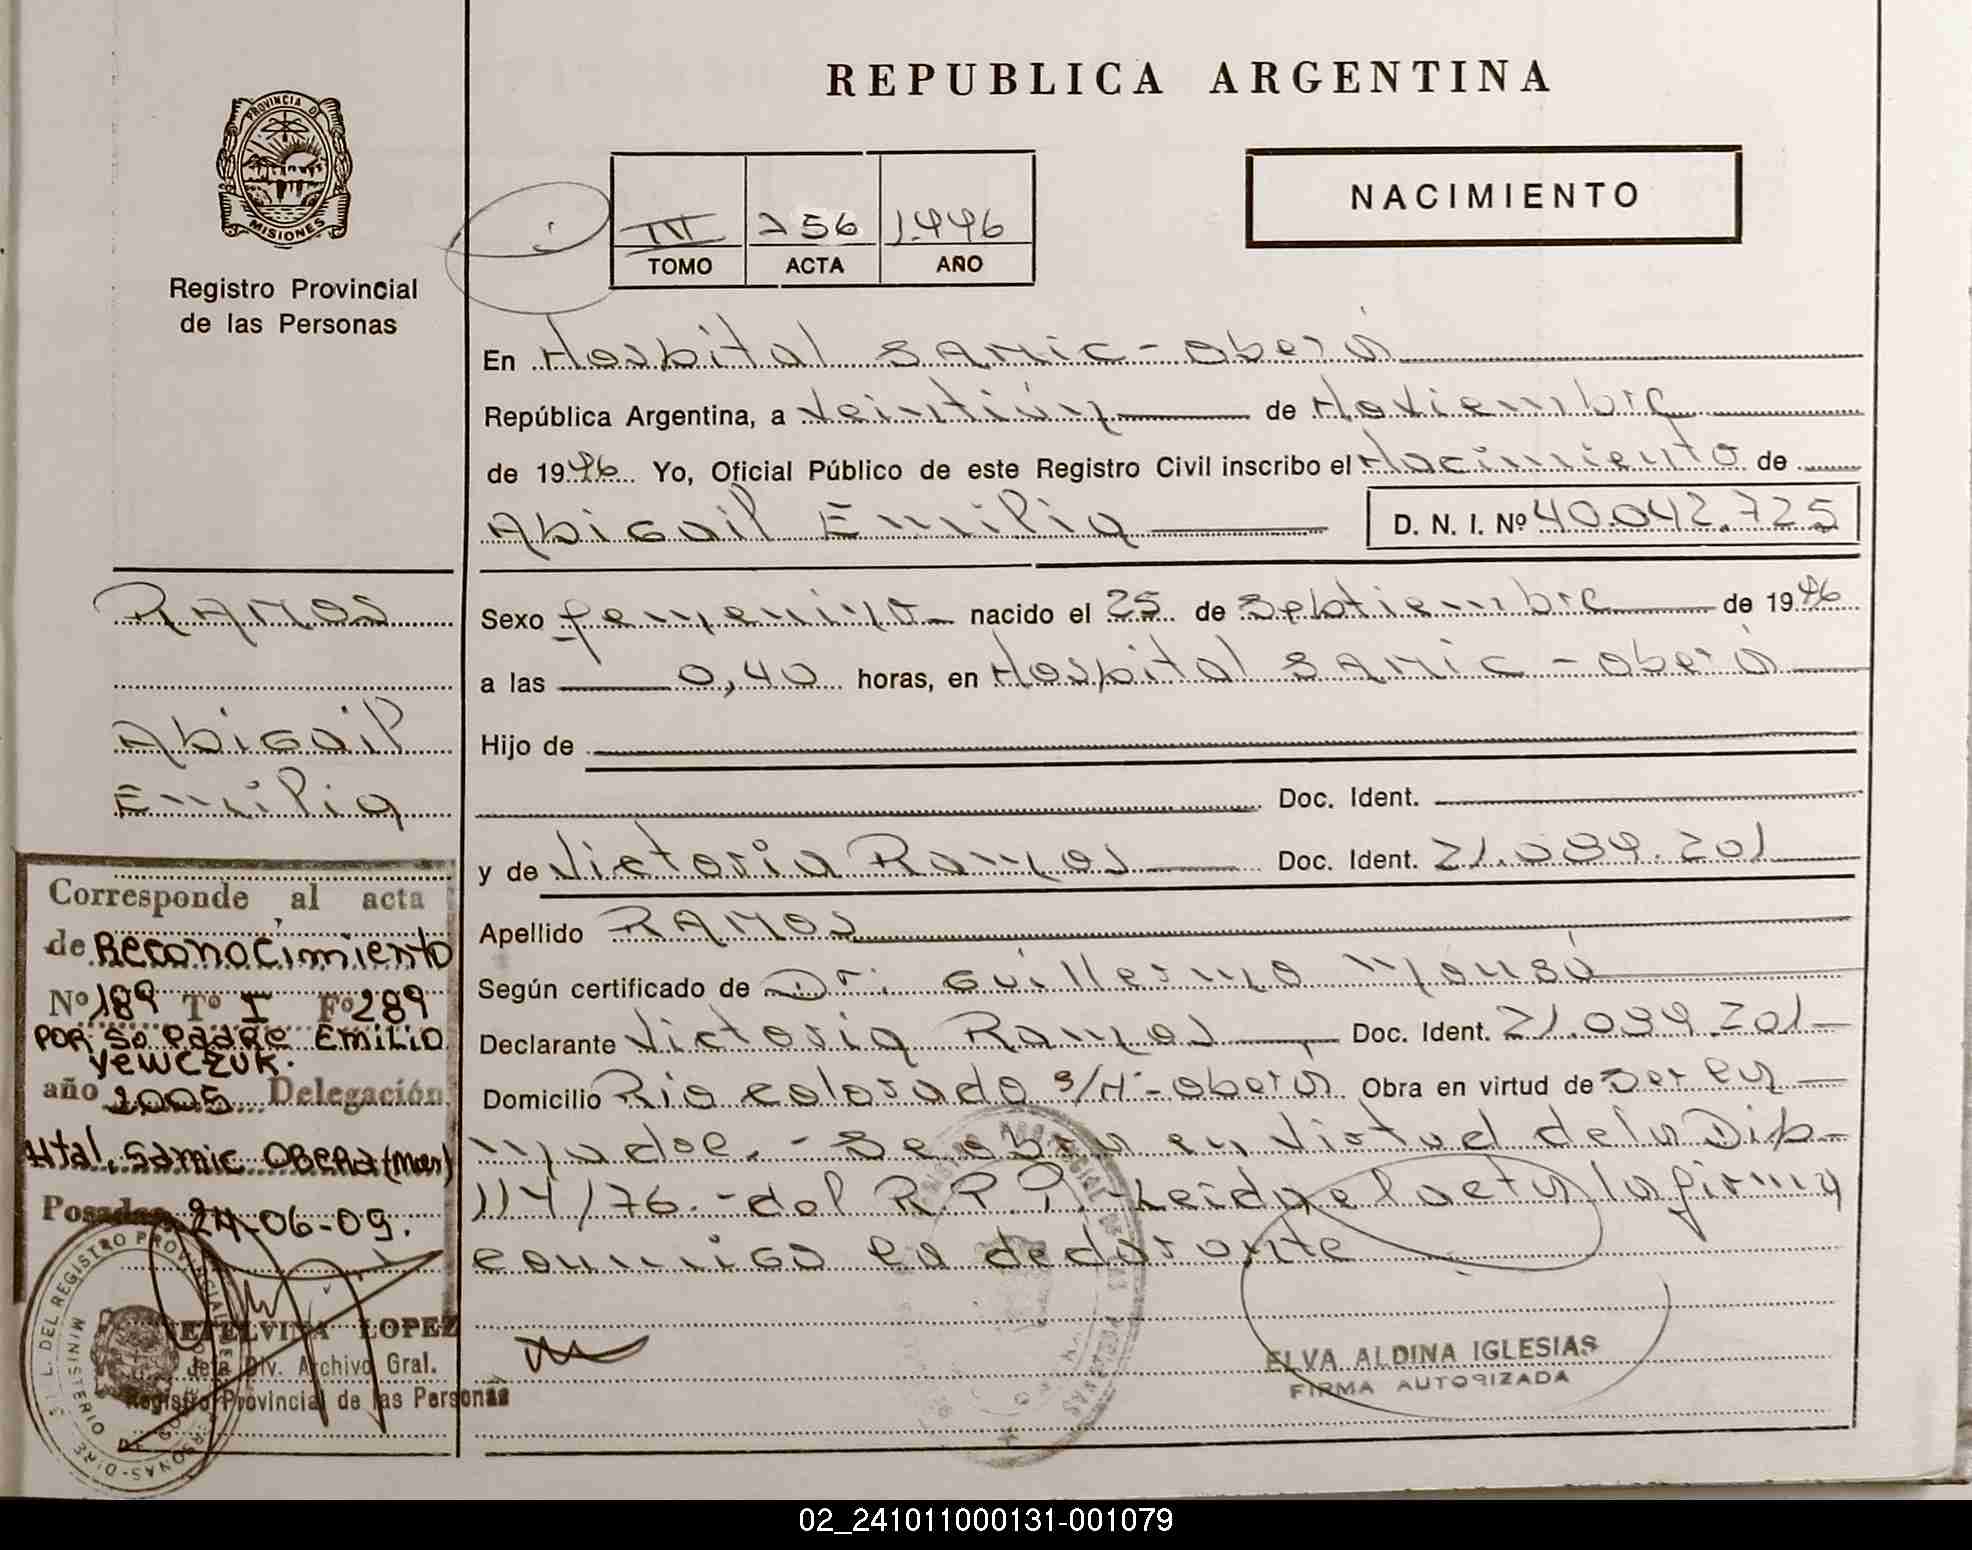 REPUBLICA ARGENTINA
PROVINCIA D
MISIONES
Registro Provincial
de las Personas
III 256 1.996
TOMO ACTA AÑO
NACIMIENTO
En Hospital SAMIC - Oberá
República Argentina, a veintiún de Noviembre
de 1996 Yo, Oficial Público de este Registro Civil inscribo el Nacimiento de
Abigail Emilia D. N. I. Nº 40.042.725
RAMOS
Abigail
Emilia
Sexo femenino nacido el 25 de Septiembre de 1996
a las 0,40 horas, en Hospital SAMIC - Oberá
Hijo de
Doc. Ident.
y de Victoria Ramos Doc. Ident. 21.089.201
Apellido RAMOS
Según certificado de Dr. Guillermo
Declarante Victoria Ramos Doc. Ident. 21.089.201
Domicilio Rio Colorado s/Nº - Oberá Obra en virtud de Ser la
madre. - Se obra en virtud de la Disp.
114/76 - del R.P.P. - Leída el acta la firma
conmigo la declarante
Corresponde al acta
de Reconocimiento
Nº 189 Tº I Fº 289
POR SU PADRE EMILIO
YEWCZUK.
año 2005 Delegación
Htal. SAMIC OBERA (Mnes)
Posadas 24-06-09.
ETELVINA LOPEZ
Jefa Div. Archivo Gral.
Registro Provincial de las Personas
ELVA ALDINA IGLESIAS
FIRMA AUTORIZADA
02_241011000131-001079